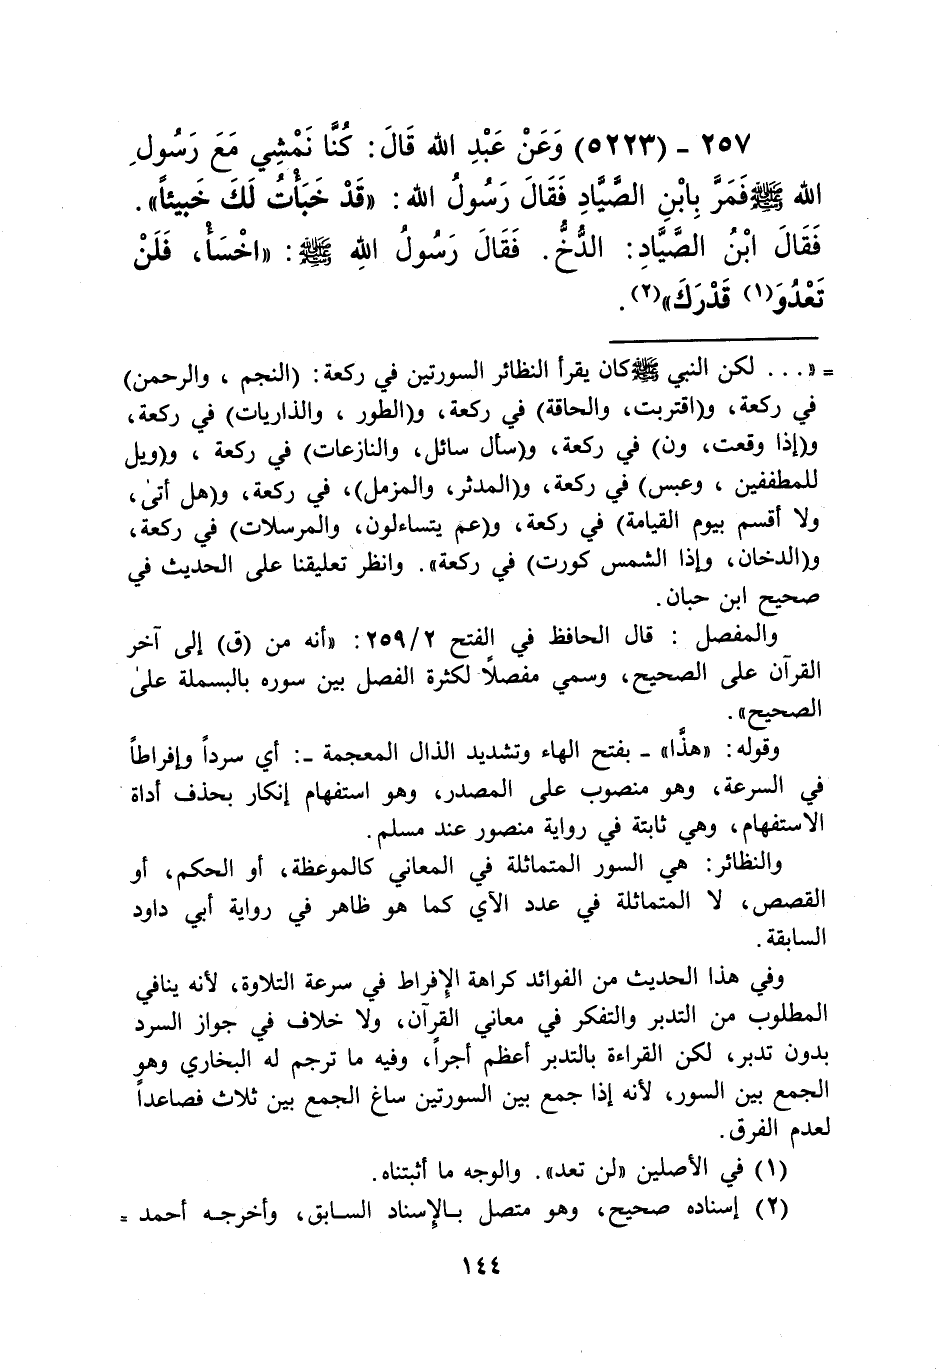 ٢٥٧ - (٥٢٢٣) وَعَنْ عَبْدِ الله قَالَ: كُنَّا نَمْشِي مَعَ رَسُولِ
الله ﷺ فَمَرَّ بِابْنِ الصَّيَّادِ فَقَالَ رَسُولُ الله: «قَدْ خَبَأْتُ لَكَ خَبِيئاً».
فَقَالَ ابْنُ الصَّيَّادِ: الدُّخُّ. فَقَالَ رَسُولُ اللهِ ﷺ: «اخْسَأْ، فَلَنْ
تَعْدُوَ(١) قَدْرَكَ»(٢).
= «... لكن النبي ﷺ كان يقرأ النظائر السورتين في ركعة: (النجم ، والرحمن)
في ركعة، و(اقتربت، والحاقة) في ركعة، و(الطور ، والذاريات) في ركعة،
و(إذا وقعت، ون) في ركعة، و(سأل سائل، والنازعات) في ركعة ، و(ويل
للمطففين ، وعبس) في ركعة، و(المدثر، والمزمل)، في ركعة، و(هل أتىٰ،
ولا أقسم بيوم القيامة) في ركعة، و(عم يتساءلون، والمرسلات) في ركعة،
و(الدخان، وإذا الشمس كورت) في ركعة». وانظر تعليقنا على الحديث في
صحيح ابن حبان.
والمفصل : قال الحافظ في الفتح ٢٥٩/٢: «أنه من (ق) إلى آخر
القرآن على الصحيح، وسمي مفصلاً لكثرة الفصل بين سوره بالبسملة علىٰ
الصحيح».
وقوله: «هذَّا» - بفتح الهاء وتشديد الذال المعجمة -: أي سرداً وإفراطاً
في السرعة، وهو منصوب على المصدر، وهو استفهام إنكار بحذف أداة
الاستفهام، وهي ثابتة في رواية منصور عند مسلم.
والنظائر: هي السور المتماثلة في المعاني كالموعظة، أو الحكم، أو
القصص، لا المتماثلة في عدد الآي كما هو ظاهر في رواية أبي داود
السابقة.
وفي هذا الحديث من الفوائد كراهة الإفراط في سرعة التلاوة، لأنه ينافي
المطلوب من التدبر والتفكر في معاني القرآن، ولا خلاف في جواز السرد
بدون تدبر، لكن القراءة بالتدبر أعظم أجراً، وفيه ما ترجم له البخاري وهو
الجمع بين السور، لأنه إذا جمع بين السورتين ساغ الجمع بين ثلاث فصاعداً
لعدم الفرق.
(١) في الأصلين «لن تعد». والوجه ما أثبتناه.
(٢) إسناده صحيح، وهو متصل بالإسناد السابق، وأخرجه أحمد =
١٤٤